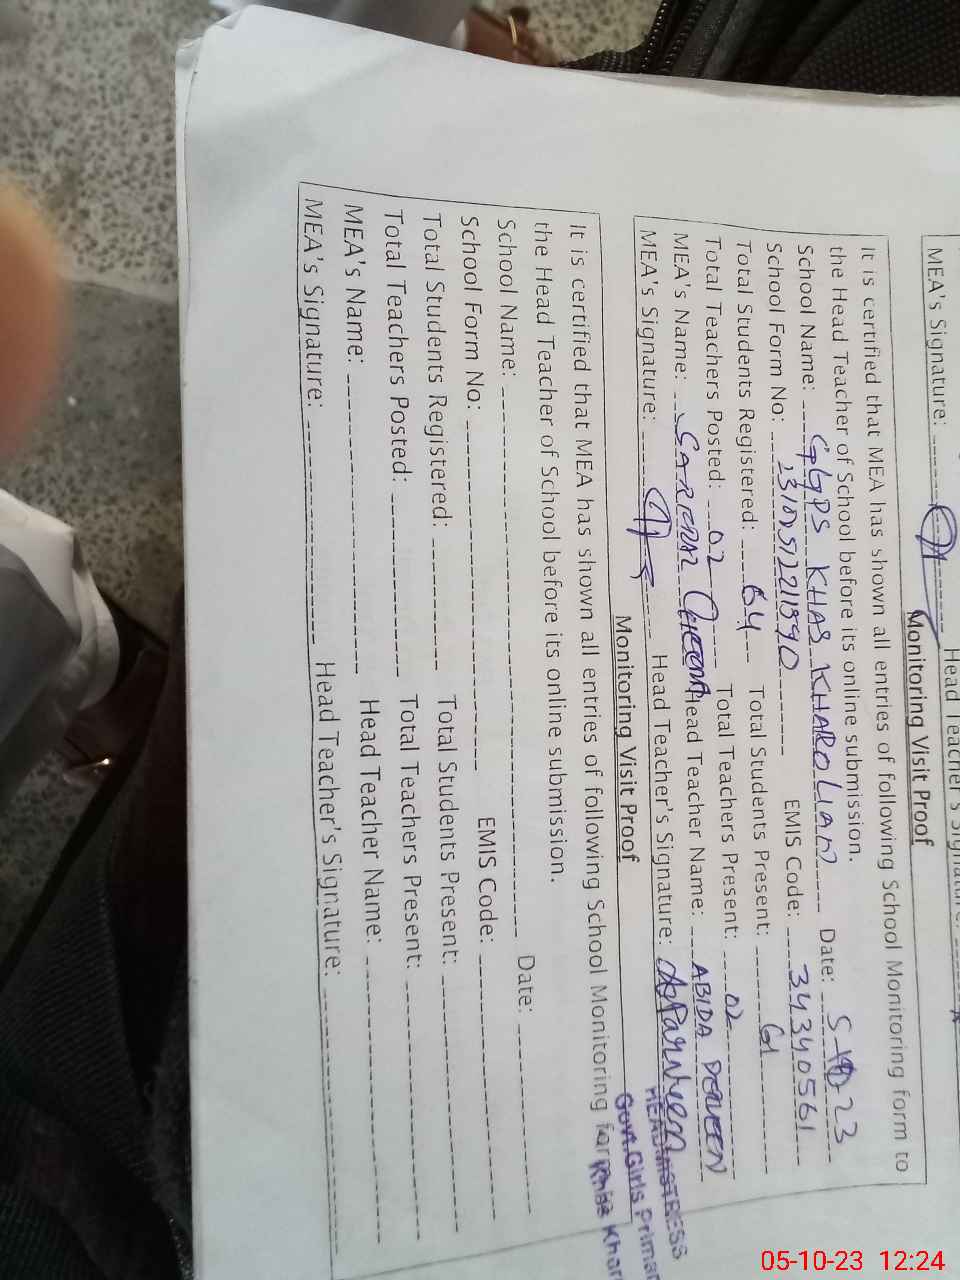 MEA's Signature: Head Teacher's Signature:
Monitoring Visit Proof
It is certified that MEA has shown all entries of following School Monitoring form to
the Head Teacher of School before its online submission.
School Name: GGPS KHAS KHAROLIAN Date: 5-10-23
School Form No: EMIS Code: 34340561
Total Students Registered: 64 Total Students Present: 61
Total Teachers Posted: 02 Total Teachers Present: 02
MEA's Name: Head Teacher Name: ABIDA PERVEEN
MEA's Signature: Head Teacher's Signature: A Parveen
HEADMISTRESS
Govt. Girls Primar
Khas Khar
Monitoring Visit Proof
It is certified that MEA has shown all entries of following School Monitoring form
the Head Teacher of School before its online submission.
School Name: Date:
School Form No: EMIS Code:
Total Students Registered: Total Students Present:
Total Teachers Posted: Total Teachers Present:
MEA's Name: Head Teacher Name:
MEA's Signature: Head Teacher's Signature:
05-10-23 12:24